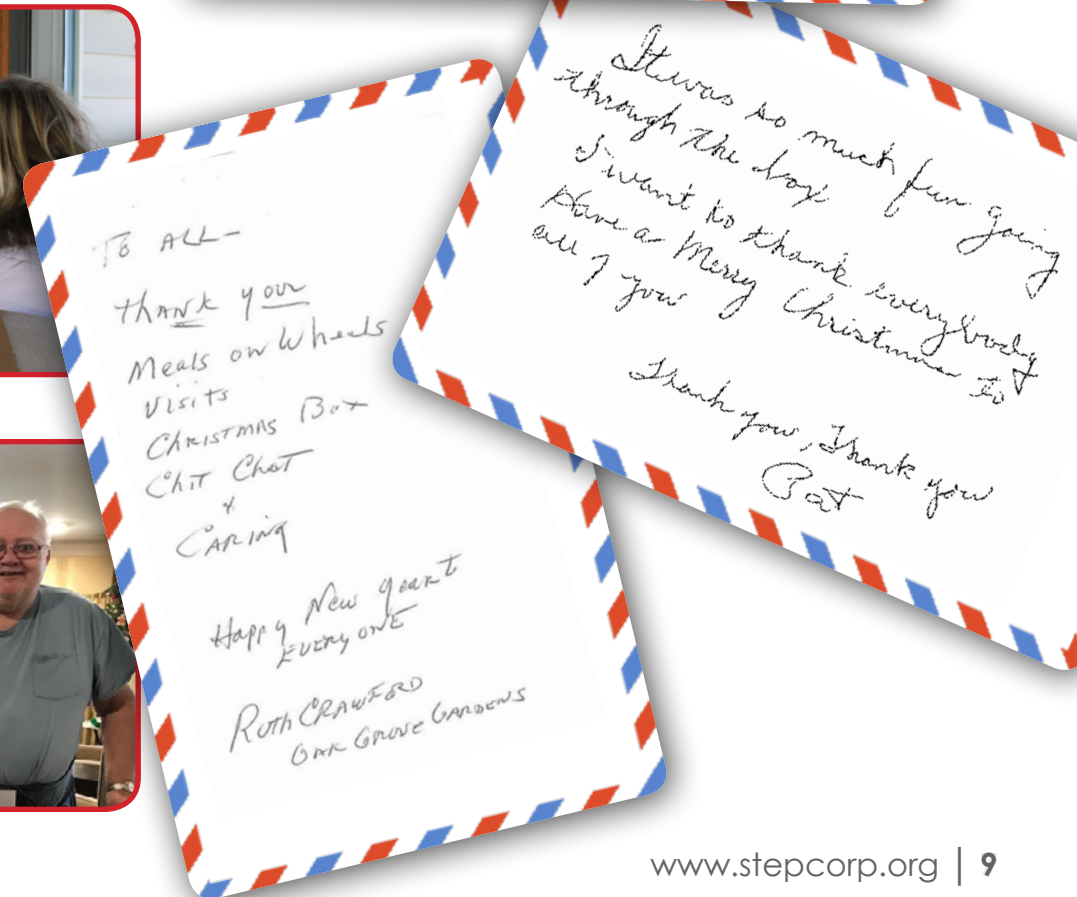 TO ALL—
thANK your
Meals on Wheels
Visits
CHRISTMAS Box
Chit Chat
&
CARING
Happy New Year
EVERYONE
RUTH CRAWFORD
OAK GROVE GARDENS
It was so much fun going
through the box
I want to thank everybody
Have a Merry Christmas to
all of you
Thank you, Thank you
Pat
www.stepcorp.org | 9